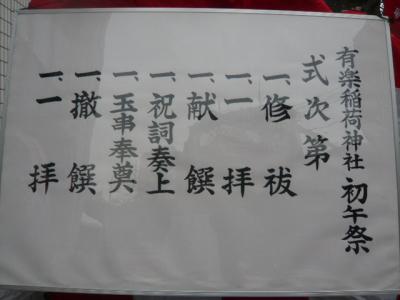 有楽稲荷神社 初午祭
式次第
一、修祓
一、一拝
一、献饌
一、祝詞奏上
一、玉串奉奠
一、撤饌
一、一拝